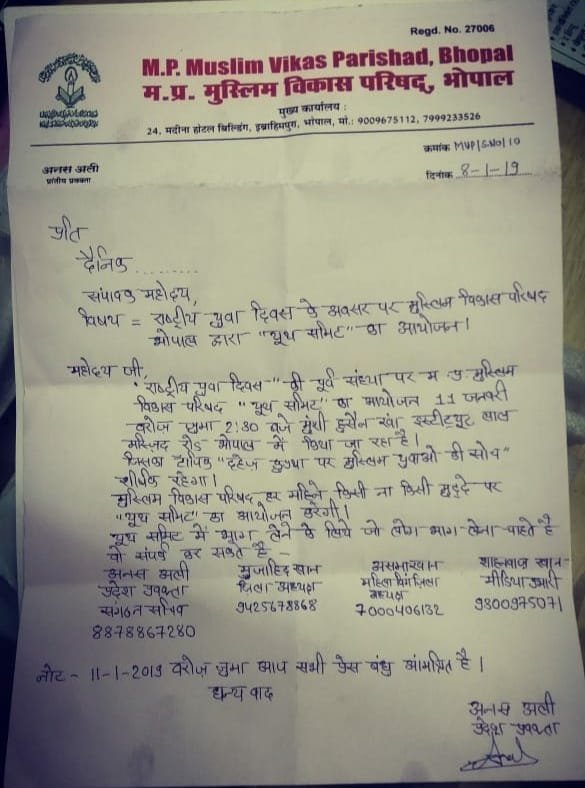 Regd. No. 27006
M.P. Muslim Vikas Parishad, Bhopal
म.प्र. मुस्लिम विकास परिषद्, भोपाल
मुख्य कार्यालय :
24, मदीना होटल बिल्डिंग, इब्राहिमपुरा, भोपाल, मो.: 9009675112, 7999233526
क्रमांक MVP/S.NO/10
अनस अली
प्रांतीय प्रवक्ता
दिनांक 8-1-19
प्रति
दैनिक .........
संपादक महोदय,
विषय = राष्ट्रीय युवा दिवस के अवसर पर मुस्लिम विकास परिषद
भोपाल द्वारा "यूथ समिट" का आयोजन।
महोदय जी,
"राष्ट्रीय युवा दिवस" की पूर्व संध्या पर म.प्र. मुस्लिम
विकास परिषद "यूथ समिट" का आयोजन 11 जनवरी
बरोज़ जुमा 2:30 बजे मुंशी हुसैन खां इंस्टीट्यूट लाल
मस्जिद रोड भोपाल में किया जा रहा है।
जिसका टॉपिक "दहेज़ कुप्रथा पर मुस्लिम युवाओं की सोच"
शीर्षक रहेगा।
मुस्लिम विकास परिषद हर महिने किसी ना किसी मुद्दे पर
"यूथ समिट" का आयोजन करेगी।
यूथ समिट में भाग लेने के लिये जो लोग भाग लेना चाहते है
वो संपर्क कर सकते है -
अनस अली मुजाहिद खान असमा खान शाहनवाज़ खान
प्रदेश प्रवक्ता जिला अध्यक्ष महिला विंग जिला मीडिया प्रभारी
अध्यक्ष
संगठन सचिव 9425678868 7000406132 9800975071
8878867280
नोट - 11-1-2019 बरोज़ जुमा आप सभी प्रेस बंधु आंमत्रित है।
धन्यवाद
अनस अली
प्रदेश प्रवक्ता